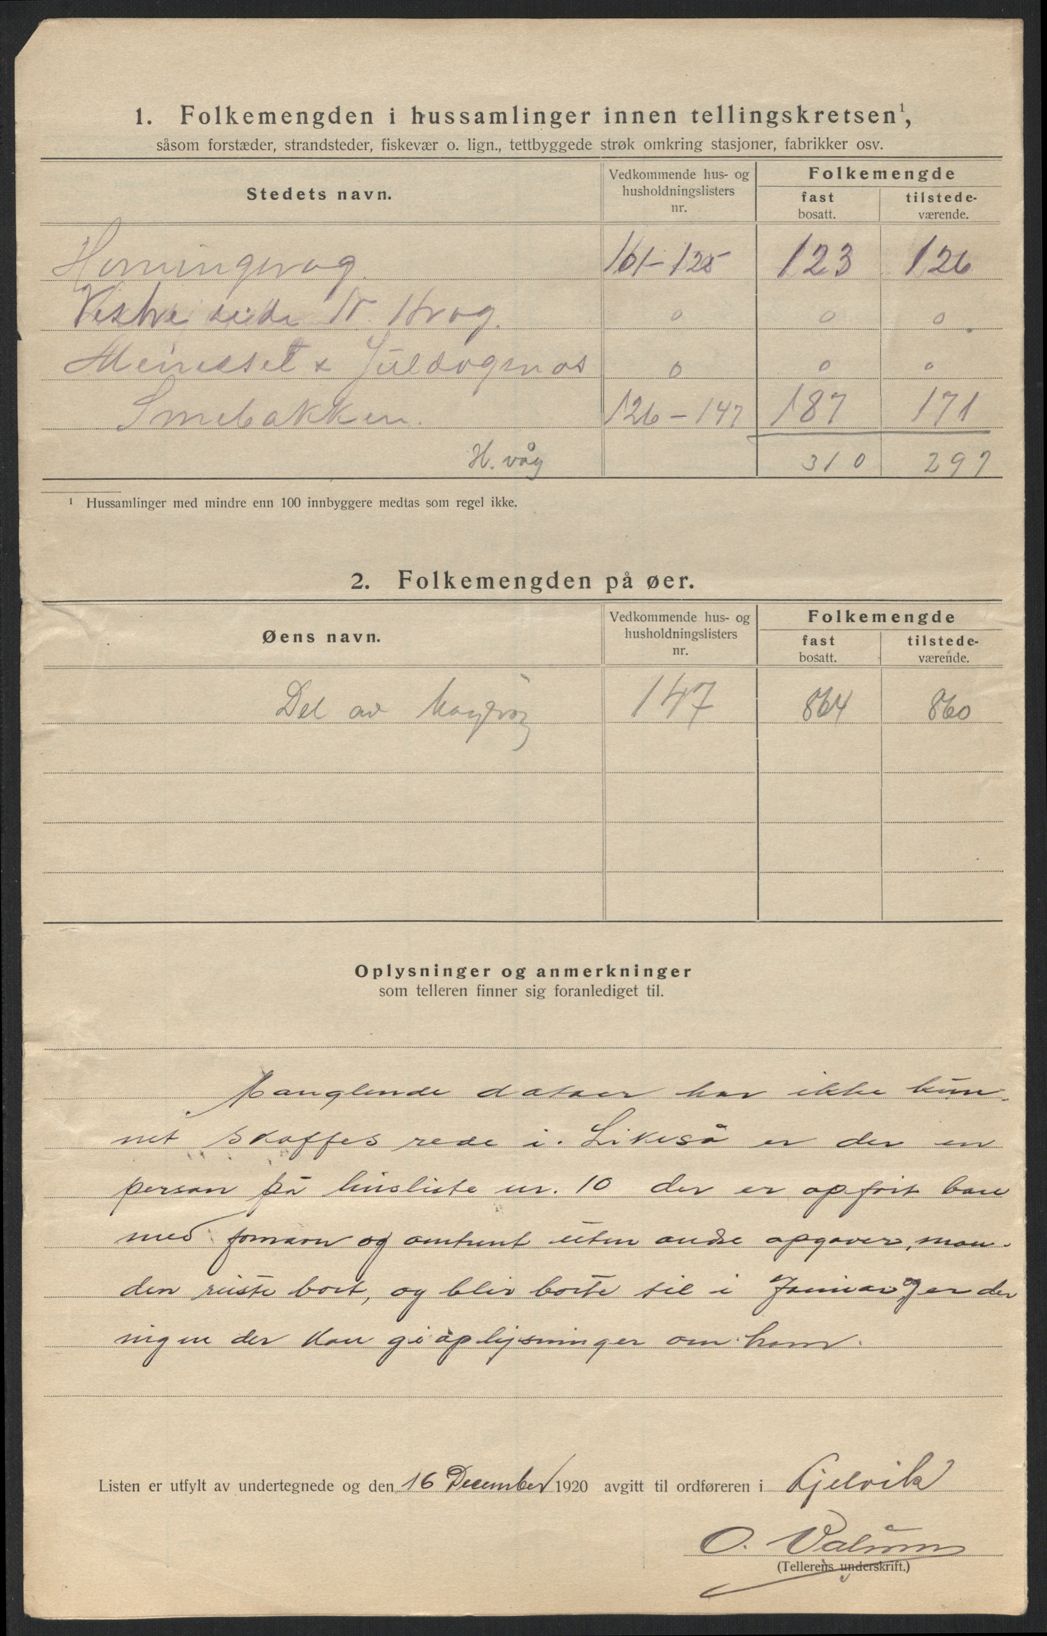 1. Folkemengden i hussamlinger innen tellingskretsen¹,
såsom forstæder, strandsteder, fiskevær o. lign., tettbyggede strøk omkring stasjoner, fabrikker osv.
Stedets navn. Vedkommende hus- og husholdningslisters nr. Folkemengde fast bosatt. tilstede- værende.
Honningsvag. 101-125 123 126
Vestre side N. Hvag. 0 0 0.
0 0 0
Smebakken. 126-147 187 171
H. våg 310 297
¹ Hussamlinger med mindre enn 100 innbyggere medtas som regel ikke.
2. Folkemengden på øer.
Øens navn. Vedkommende hus- og husholdningslisters nr. Folkemengde fast bosatt. tilstede- værende.
Del av Magerøy 147 864 860
Oplysninger og anmerkninger
som telleren finner sig foranlediget til.
Manglende dataer har ikke kun-
net skaffes rede i. Likeså er der en
person på husliste nr. 10 der er opført bare
med fornavn og omtrent uten andre opgaver, man-
den reiste bort, og blir borte til i Januar og er der
ingen der kan gi oplysninger om ham.
Listen er utfylt av undertegnede og den 16 December 1920 avgitt til ordføreren i Kjelvik
O. Valum
(Tellerens underskrift.)